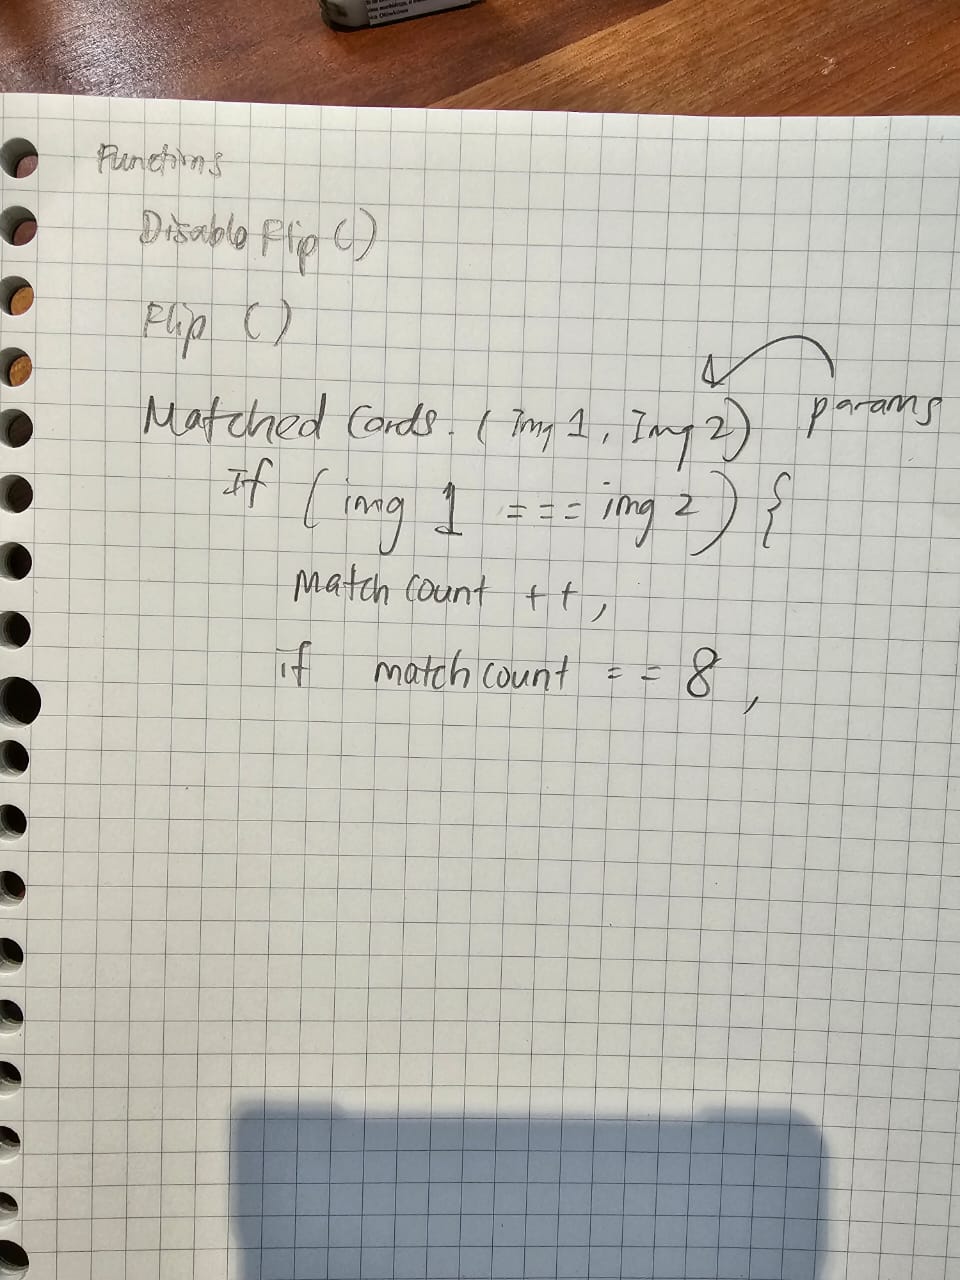 Functions
Disable Flip ()
Flip ()
Matched Cards. (Img 1, Img 2) params
If (img 1 === img 2) {
Match count ++,
if match count == 8,